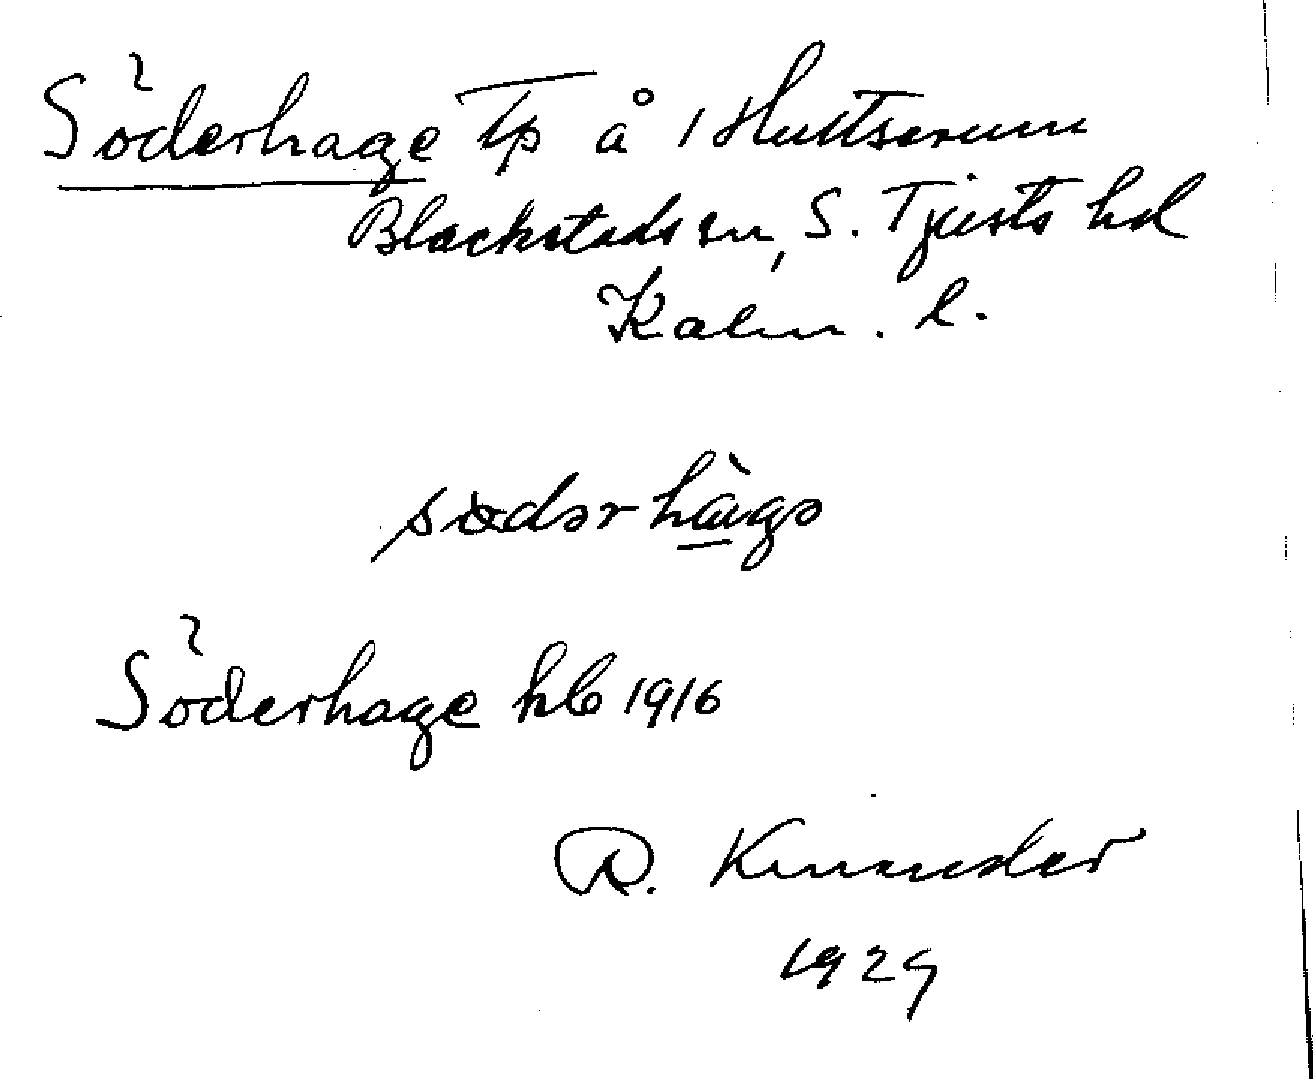 Söderhage Tp å 1 Hultserum
Blackstads sn, S. Tjusts hd
Kalm. l.
Söderhage hb 1916
R. Kinander
1929